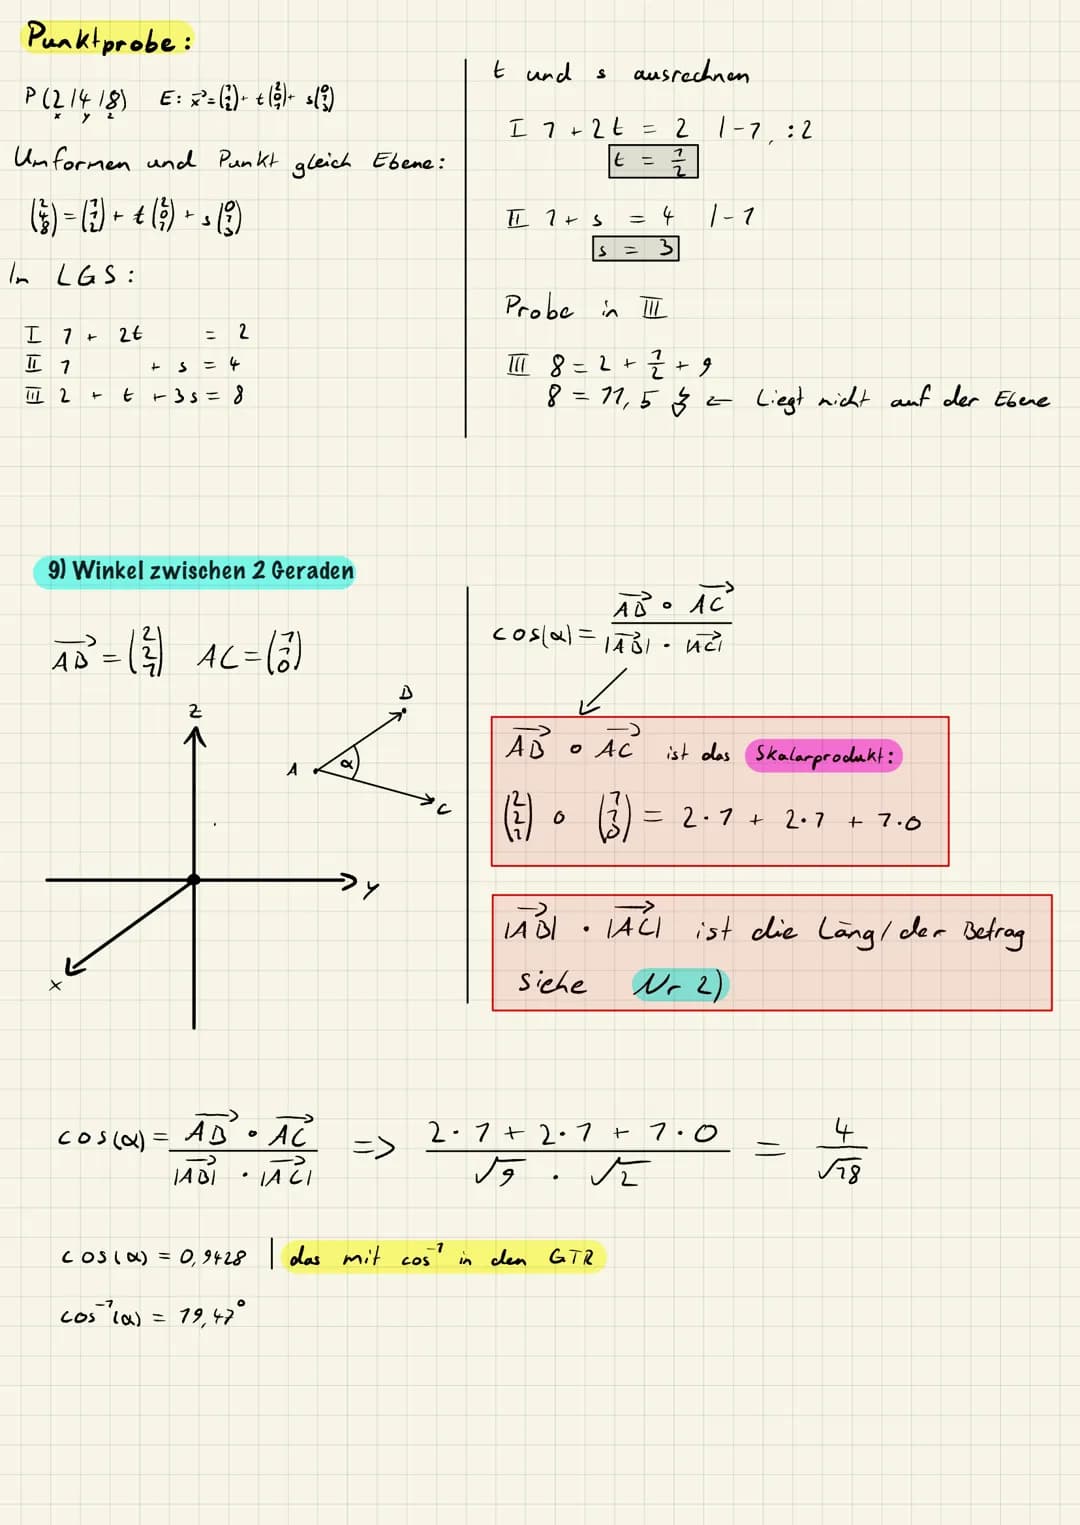 Punktprobe:
P(2/4/8) E: x⃗ = (1 1 2) + t (2 0 1) + s (0 1 3)
x y z
Umformen und Punkt gleich Ebene:
(2 4 8) = (1 1 2) + t (2 0 1) + s (0 1 3)
In LGS:
I 1 + 2t = 2
II 1 + s = 4
III 2 + t + 3s = 8
t und s ausrechnen
I 1 + 2t = 2 |-1, :2
t = 1/2
II 1 + s = 4 |-1
s = 3
Probe in III
III 8 = 2 + 1/2 + 9
8 = 11,5 ↯ ← Liegt nicht auf der Ebene
9) Winkel zwischen 2 Geraden
AB⃗ = (2 2 1) AC = (1 1 0)
z
B
A
α
C
y
x
cos(α) = AB⃗ ∘ AC⃗ / |AB⃗| · |AC⃗|
AB⃗ ∘ AC⃗ ist das Skalarprodukt:
(2 2 1) ∘ (1 1 0) = 2·1 + 2·1 + 1·0
|AB⃗| · |AC⃗| ist die Läng/der Betrag
siehe Nr 2)
cos(α) = AB⃗ ∘ AC⃗ / |AB⃗| · |AC⃗| => 2·1 + 2·1 + 1·0 / √9 · √2 = 4 / √18
cos(α) = 0,9428 | das mit cos⁻¹ in den GTR
cos⁻¹(α) = 19,47°